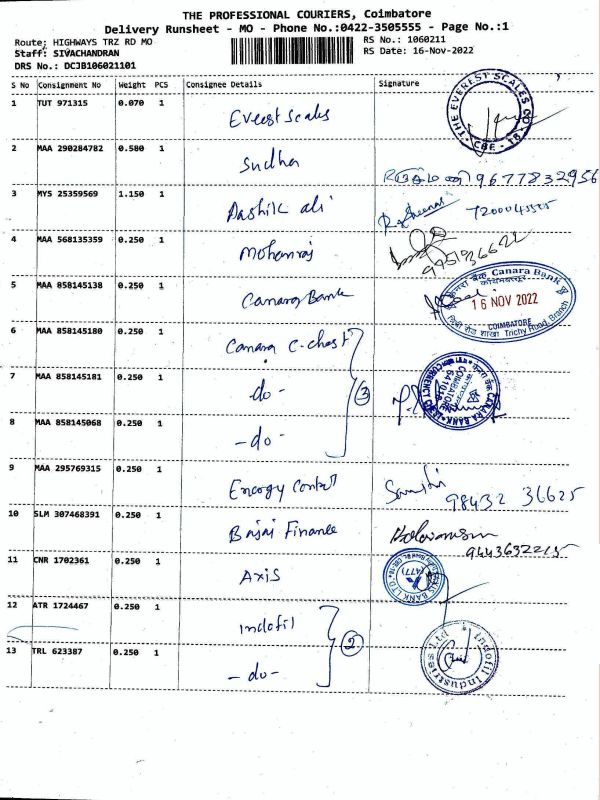 THE PROFESSIONAL COURIERS, Coimbatore
Delivery Runsheet - MO - Phone No.:0422-3505555 - Page No.:1
Route: HIGHWAYS TRZ RD MO
RS No.: 1060211
Staff: SIVACHANDRAN
RS Date: 16-Nov-2022
DRS No.: DCJB106021101
S No Consignment No Weight PCS Consignee Details Signature
1 TUT 971315 0.070 1 Everest Scales
THE EVEREST SCALES CO CBE - 18
2 MAA 290284782 0.580 1 Sudha 9677832956
3 MYS 25359569 1.150 1 Aashik ali
4 MAA 568135359 0.250 1 Mohanraj 9751936622
5 MAA 858145138 0.250 1 Canara Bank
केनरा बैंक Canara Bank
कोयम्बत्तूर
16 NOV 2022
COIMBATORE
Trichy Road, Branch
6 MAA 858145180 0.250 1 Canara C-chest
7 MAA 858145181 0.250 1 -do- 3
केनरा बैंक CANARA BANK
COIMBATORE
641018
CURRENCY
8 MAA 858145068 0.250 1 -do-
9 MAA 295769315 0.250 1 Energy Control 98432 36625
10 SLM 307468391 0.250 1 Bajaj Finance 9443632215
11 CNR 1702361 0.250 1 Axis
AXIS BANK LTD
(477)
12 ATR 1724467 0.250 1 Indofil
13 TRL 623387 0.250 1 -do- 2
Indofil Industries Ltd